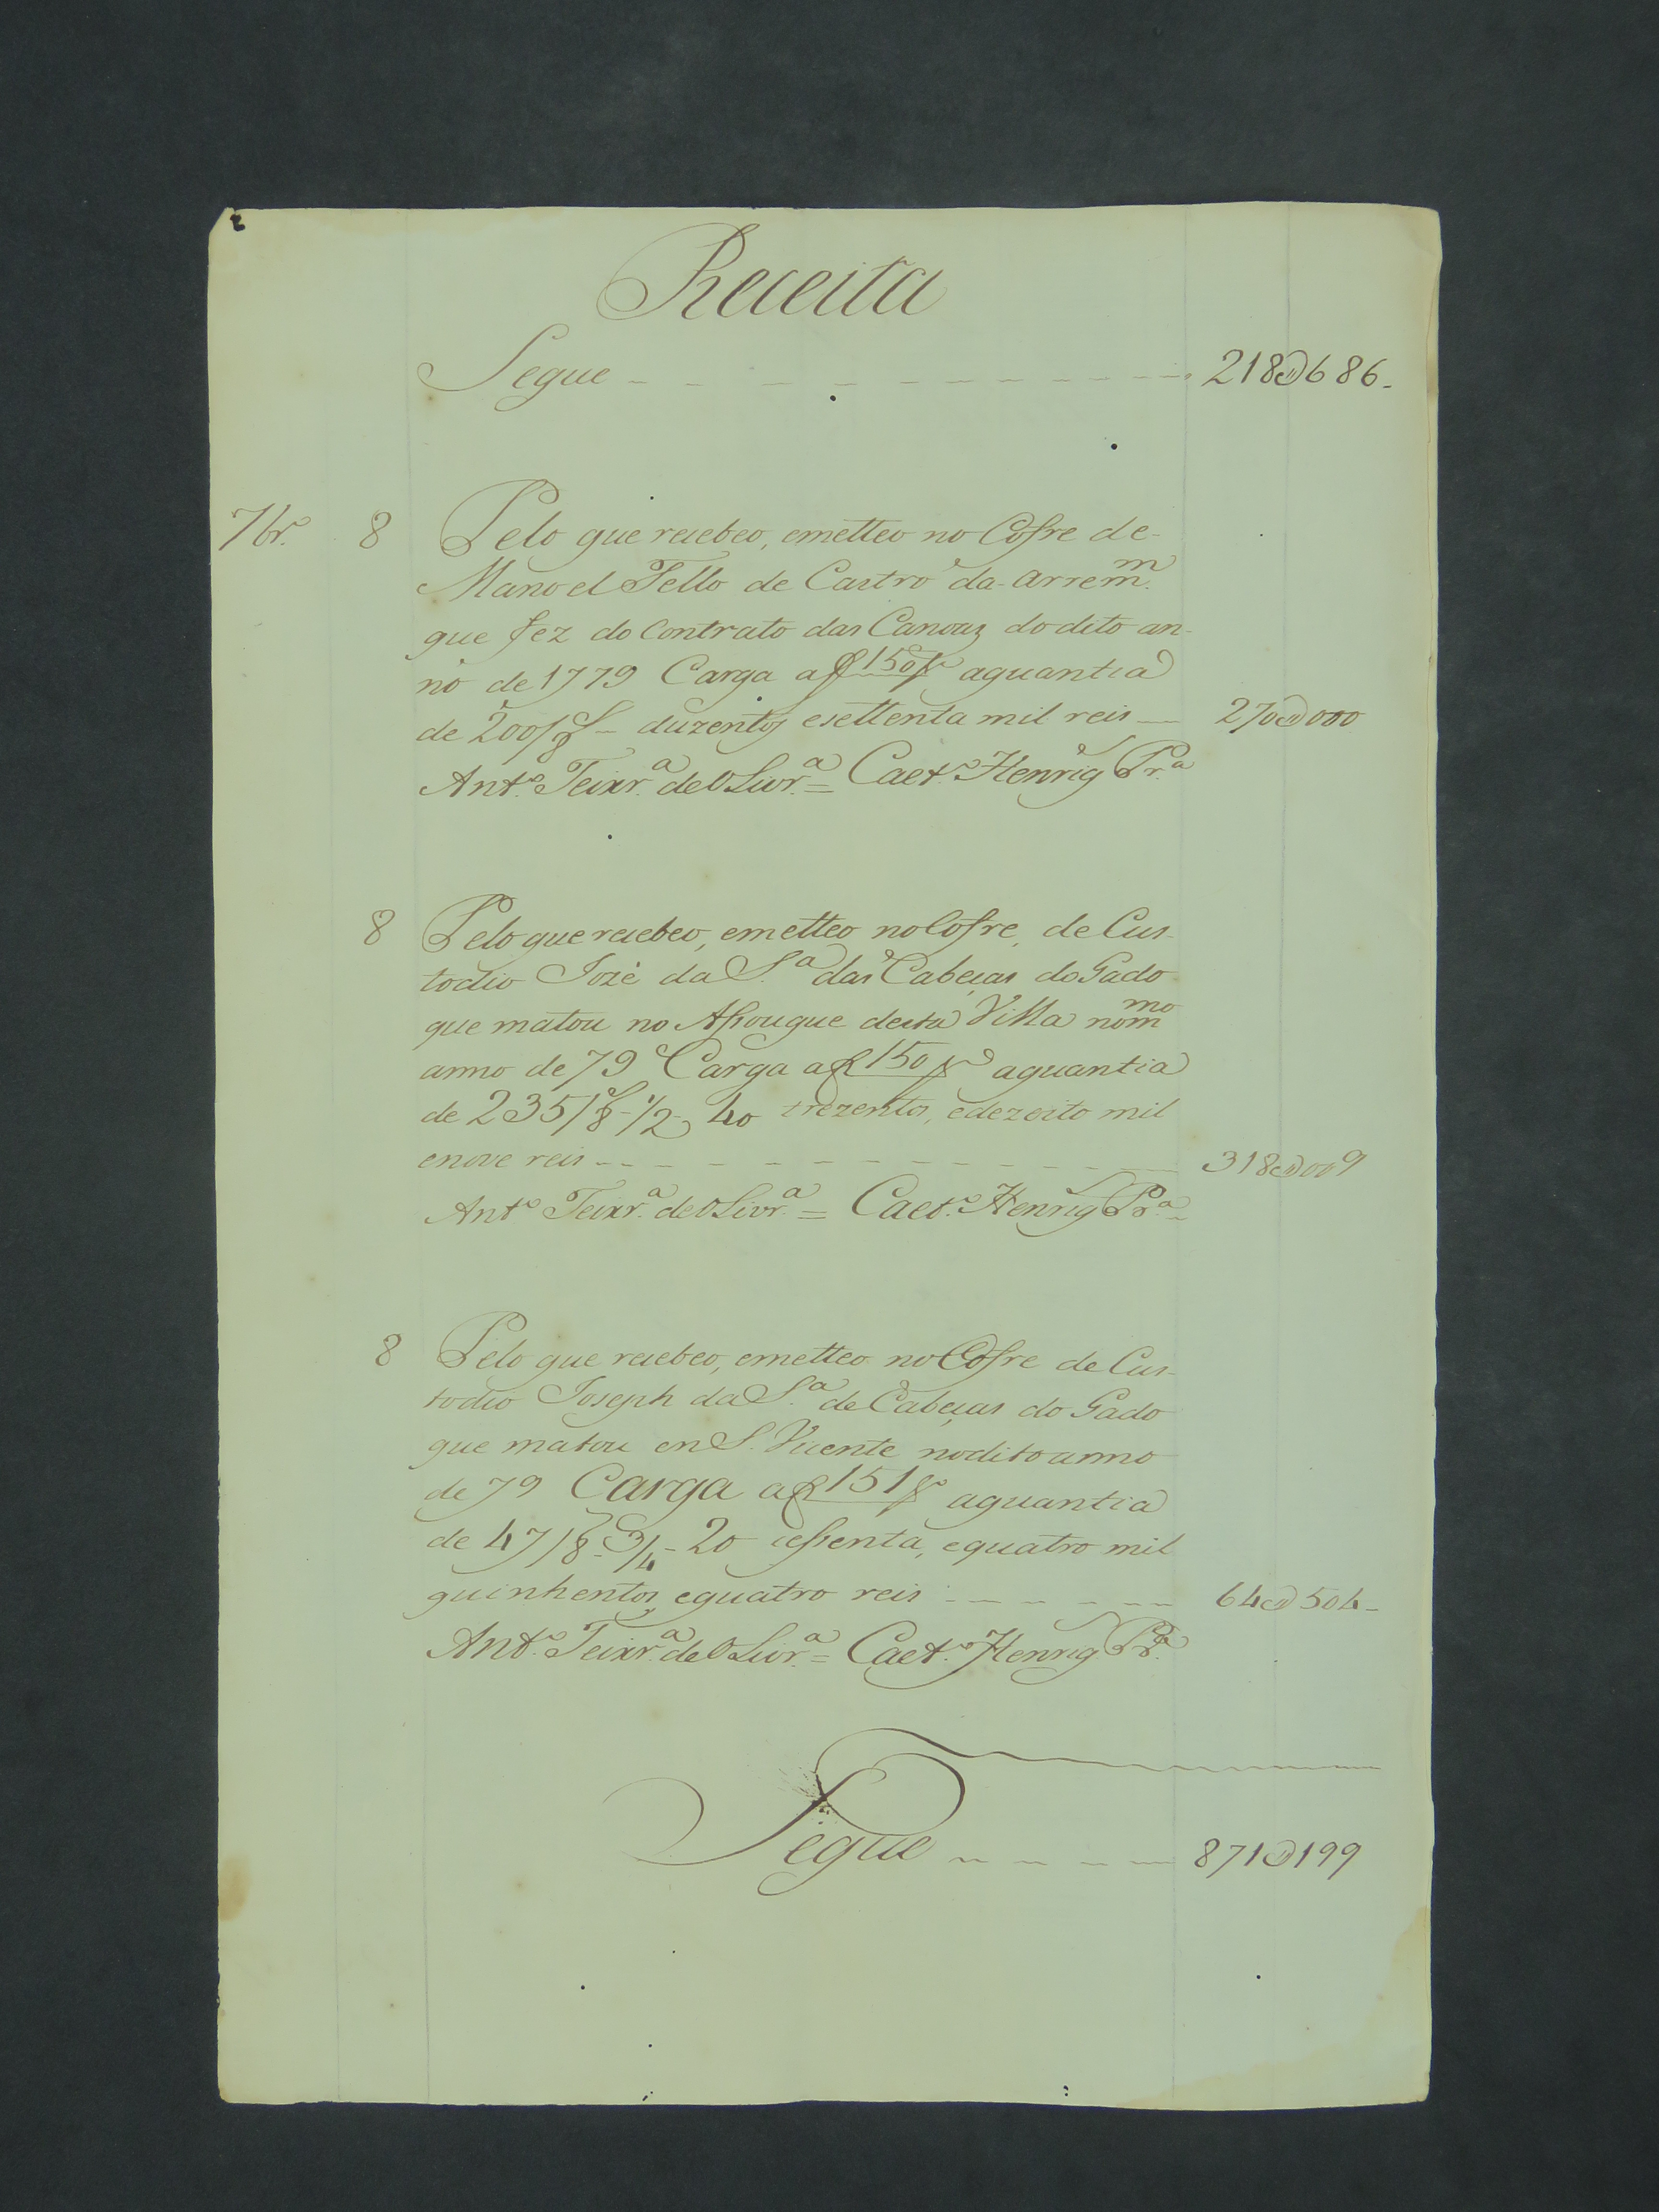 Receita
Segue - - - - - - - - - - - 218$686-
7br.º 8 Pelo que recebeo, emetteo no Cofre de-
Manoel Tello de Castro da arrem.m
que fez do Contrato das Canoas do dito an-
no de 1779 Carga a f 150 v aquantia
de 200/8 - duzentos esettenta mil reis — 270$000
Ant.º Teixr.ª de Olivr.ª = Caet.º Henriq Pr.ª
8 Pelo que recebeo, emetteo no Cofre, de Cus-
todio Jozè da S.ª das Cabeças do Gado
que matou no Assougue desta Villa nom.mo
anno de 79 Carga a f 150 v aquantia
de 235/8-1/2 40 trezentos, edezoito mil
enove reis - - - - - - - - - - - 318$009
Ant.º Teixr.ª de Olivr.ª = Caet.º Henriq Pr.ª
8 Pelo que recebeo, emetteo no Cofre de Cus-
todio Joseph da S.ª de Cabeças do Gado
que matou en S. Vicente nodito anno
de 79 Carga a f 151 v aquantia
de 47/8-3/4-20 cessenta, equatro mil
quinhentos equatro reis - - - - - - 64$504-
Ant.º Teixr.ª de Olivr.ª = Caet.º Henriq Pr.ª
Segue - - - - - 871$199